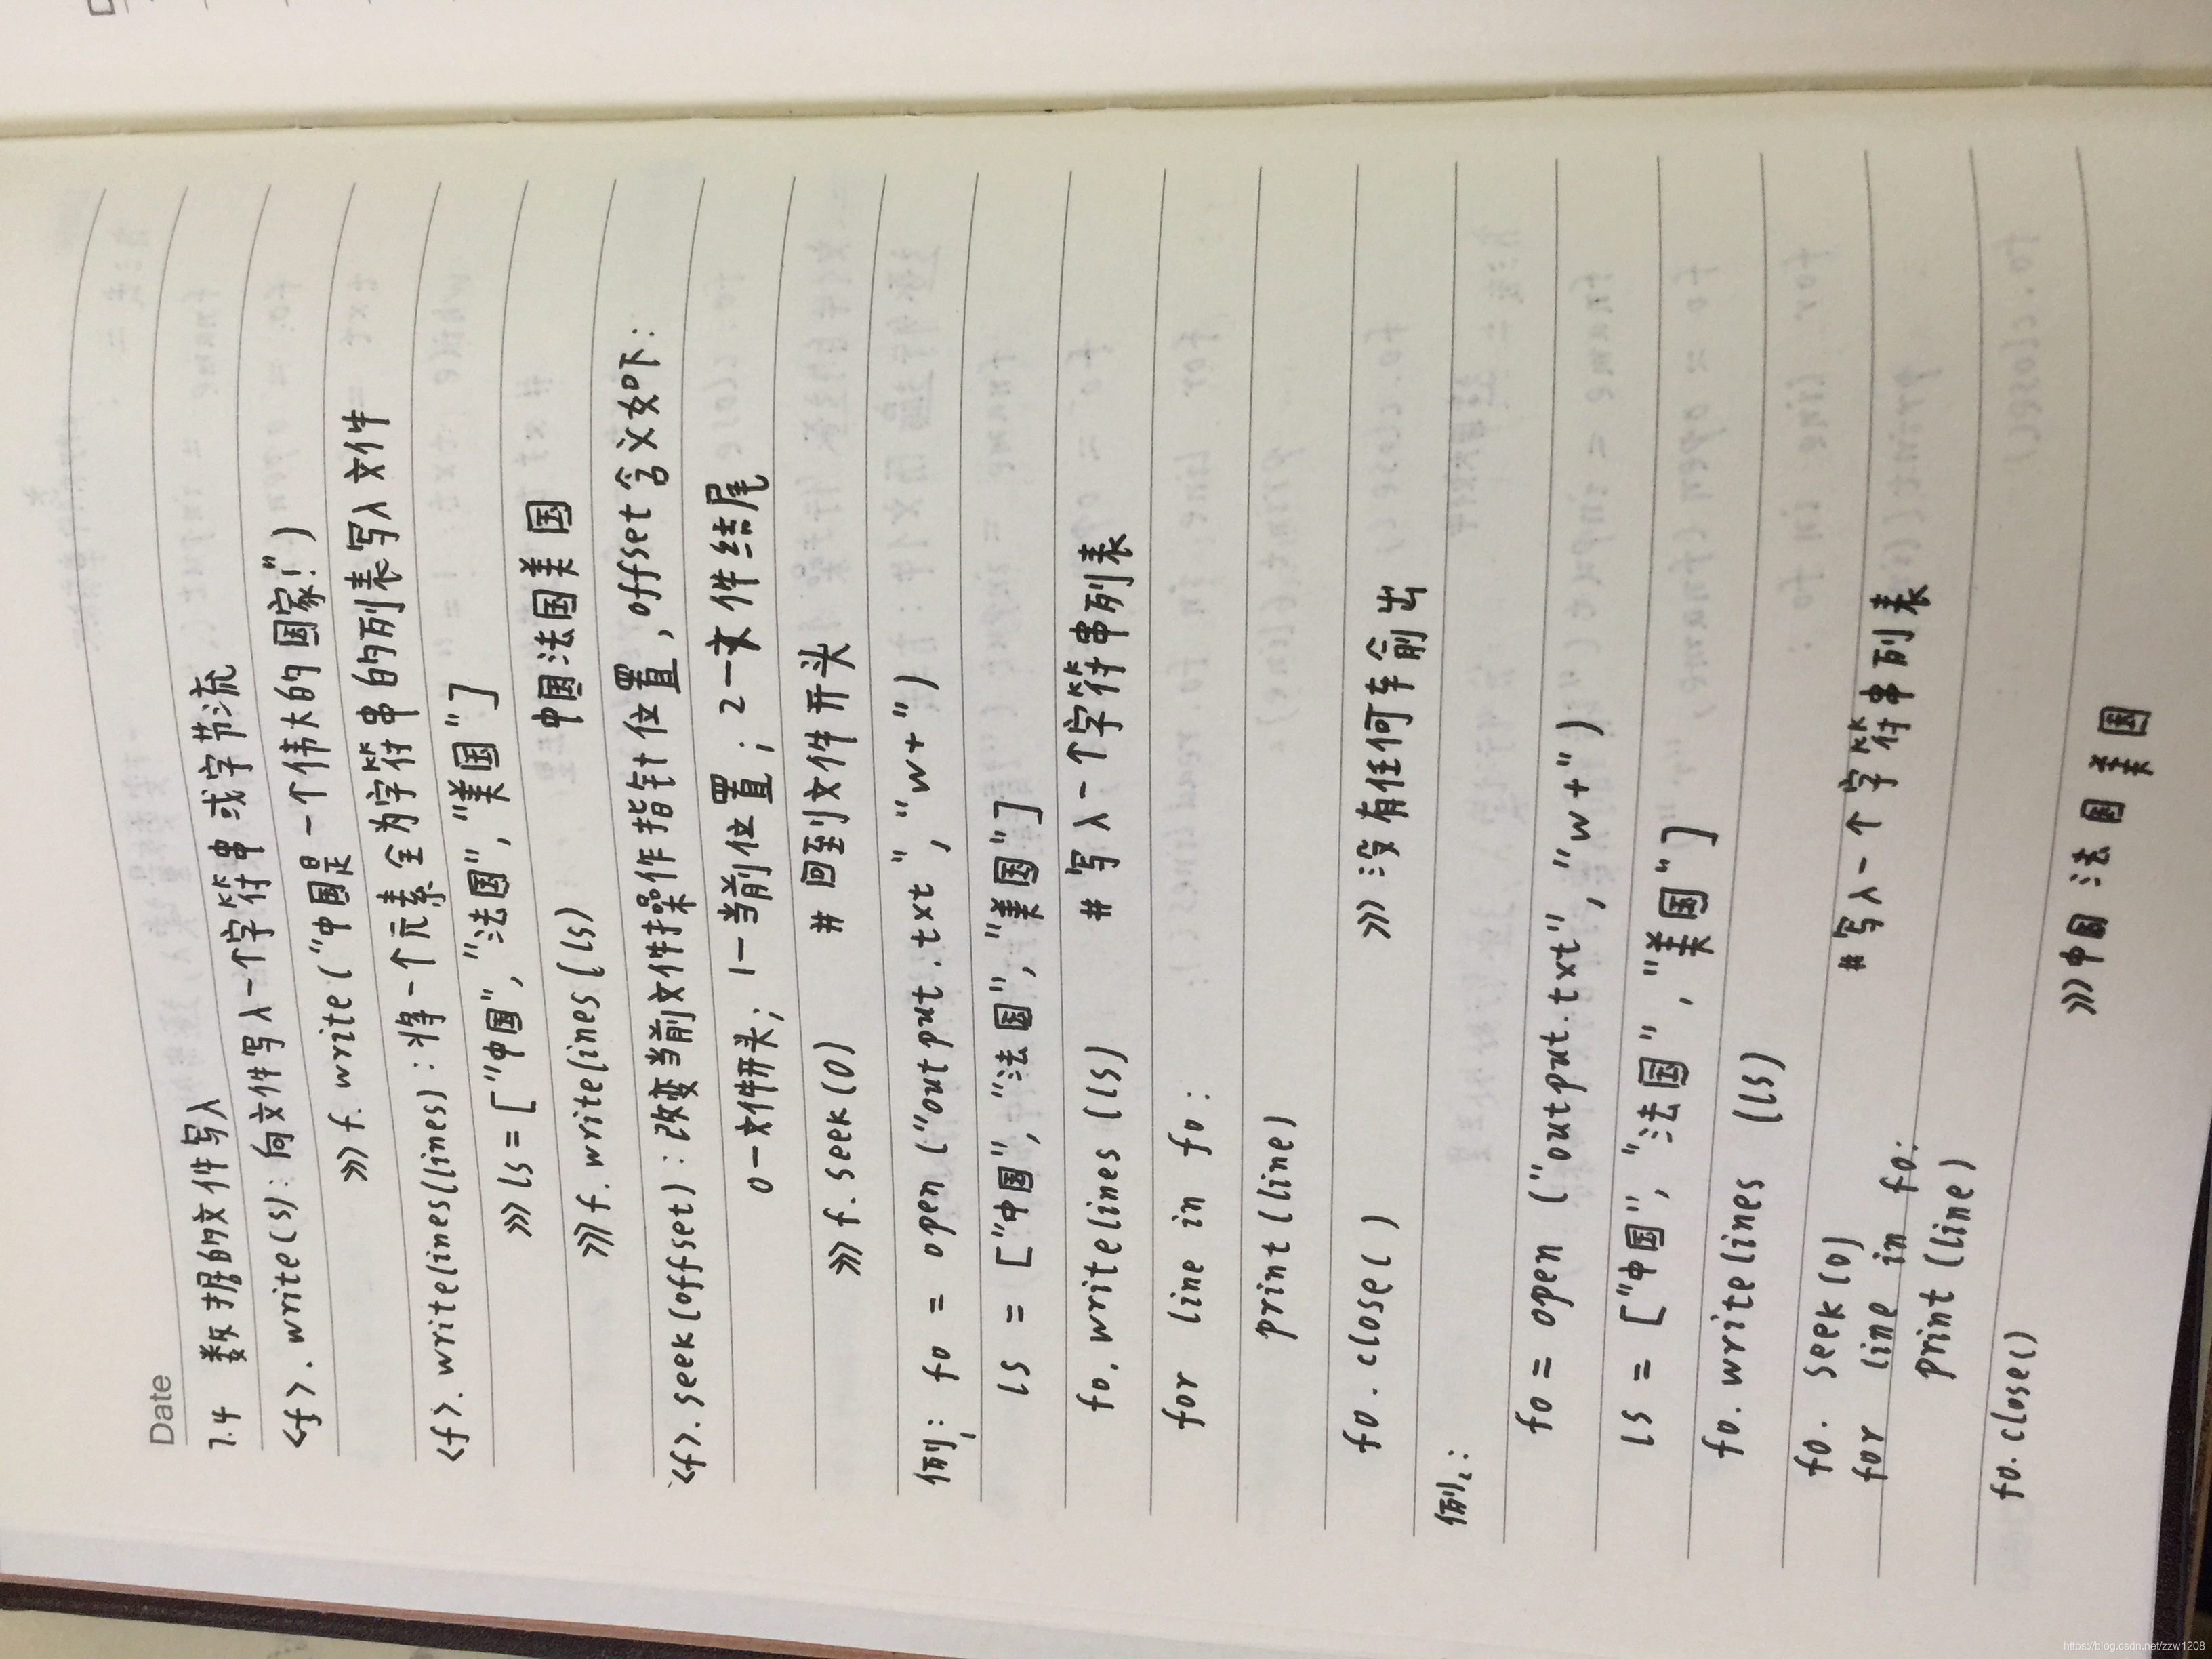 Date
7.4 数据的文件写入
<f>.write(s):向文件写入一个字符串或字节流
>>>f.write("中国是一个伟大的国家!")
<f>.writelines(lines):将一个元素全为字符串的列表写入文件
>>>ls=["中国","法国","美国"]
>>>f.writelines(ls) 中国法国美国
<f>.seek(offset):改变当前文件操作指针位置,offset含义如下:
0—文件开头;1—当前位置;2—文件结尾
>>>f.seek(0) #回到文件开头
例1:fo = open("output.txt","w+")
ls = ["中国","法国","美国"]
fo.writelines(ls) #写入一个字符串列表
for line in fo:
print(line)
fo.close() >>>没有任何输出
例2:
fo = open ("output.txt","w+")
ls = ["中国","法国","美国"]
fo.writelines (ls)
#写入一个字符串列表
fo.seek(0)
for line in fo:
print(line)
fo.close()
>>>中国法国美国
https://blog.csdn.net/zzw1208